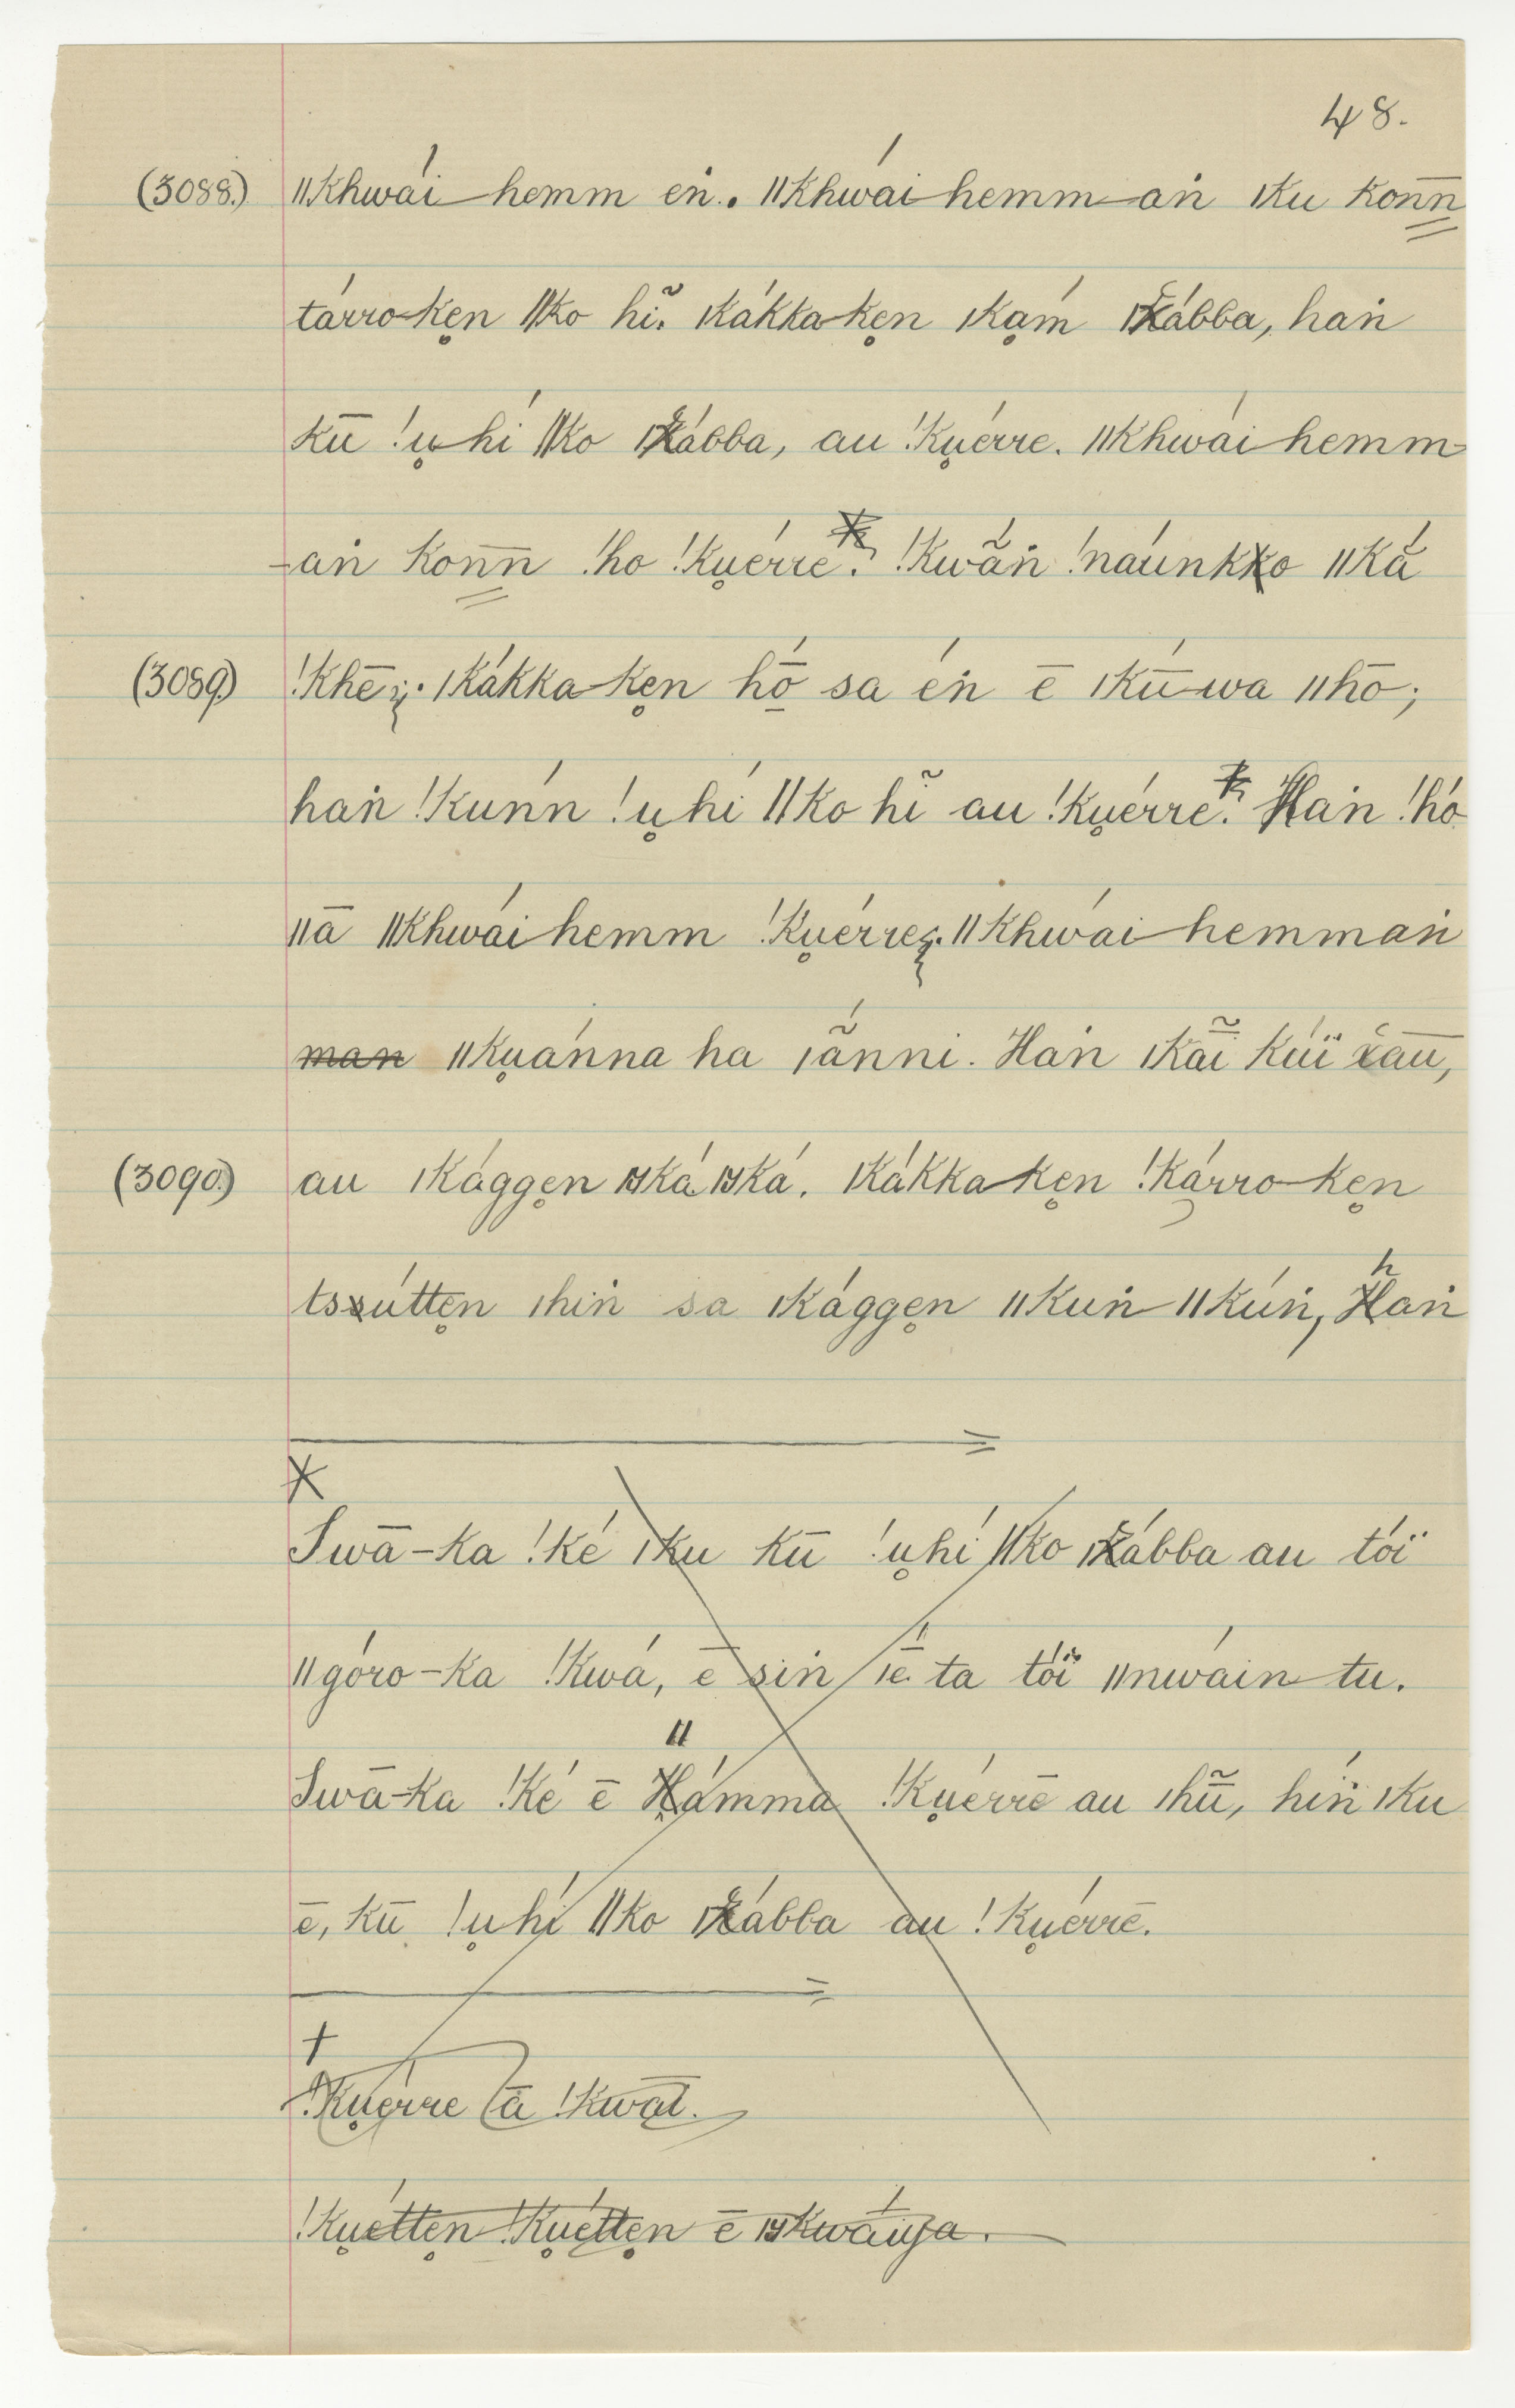 48.
(3088.) ǁkhwái-hemm eṅ. ǁkhwái-hemm-aṅ ǀku ko͞nn
tárro-k̥en ǁko hĩ. ǀkákka-k̥en ǀkạḿ ǀχábba, haṅ
kū !u̥hí ǁko ǀχábba, au !ku̥érre. ǁkhwái-hemm-
-aṅ ko͞nn !ho !ku̥érre. !kwãṅ !náunko ǁkā́
(3089) !khē; ǀkákka-k̥en hṓ sa éṅ ē ǀkū́-wa ǁhō;
haṅ !kúnn !u̥hí ǁko hĩ au !ku̥érre. Haṅ !hó
ǁā ǁkhwái-hemm !ku̥érre; ǁkhwái-hemmaṅ
man ǁku̥ánna ha ǀã́nni. Haṅ ǀkãĩ kúï χau,
(3090) au ǀkágge̥n ʘká ʘká. ǀkákka-k̥en !kárro-k̥en
tsχútte̥n ǀhiṅ sa ǀkágge̥n ǁkuṅ-ǁkúṅ, haṅ
Swā-ka !ké ǀku kū !u̥hí ǁko ǀχábba au tóï
ǁgóro-ka !kwá, ē siṅ ǀḗ ta tóï ǁnwáin-tu.
Swā-ka !ké ē ǁámma !ku̥érrē au ǀhũ, híṅ ǀku
ē, kū !u̥hí ǁko ǀχábba au !ku̥érrē.
+
!ku̥érre ā !kwāī.
!ku̥étte̥n !ku̥étte̥n ē ʘkwáïya.